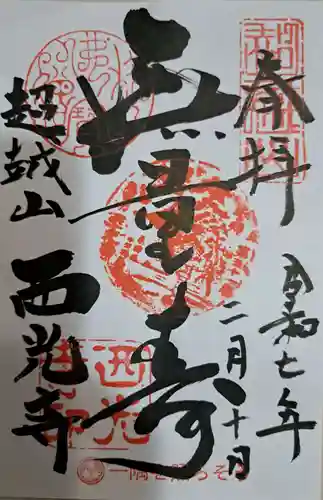 奉拝
令和七年
二月十日
無量寿
超越山
西光寺
一隅を照らそう